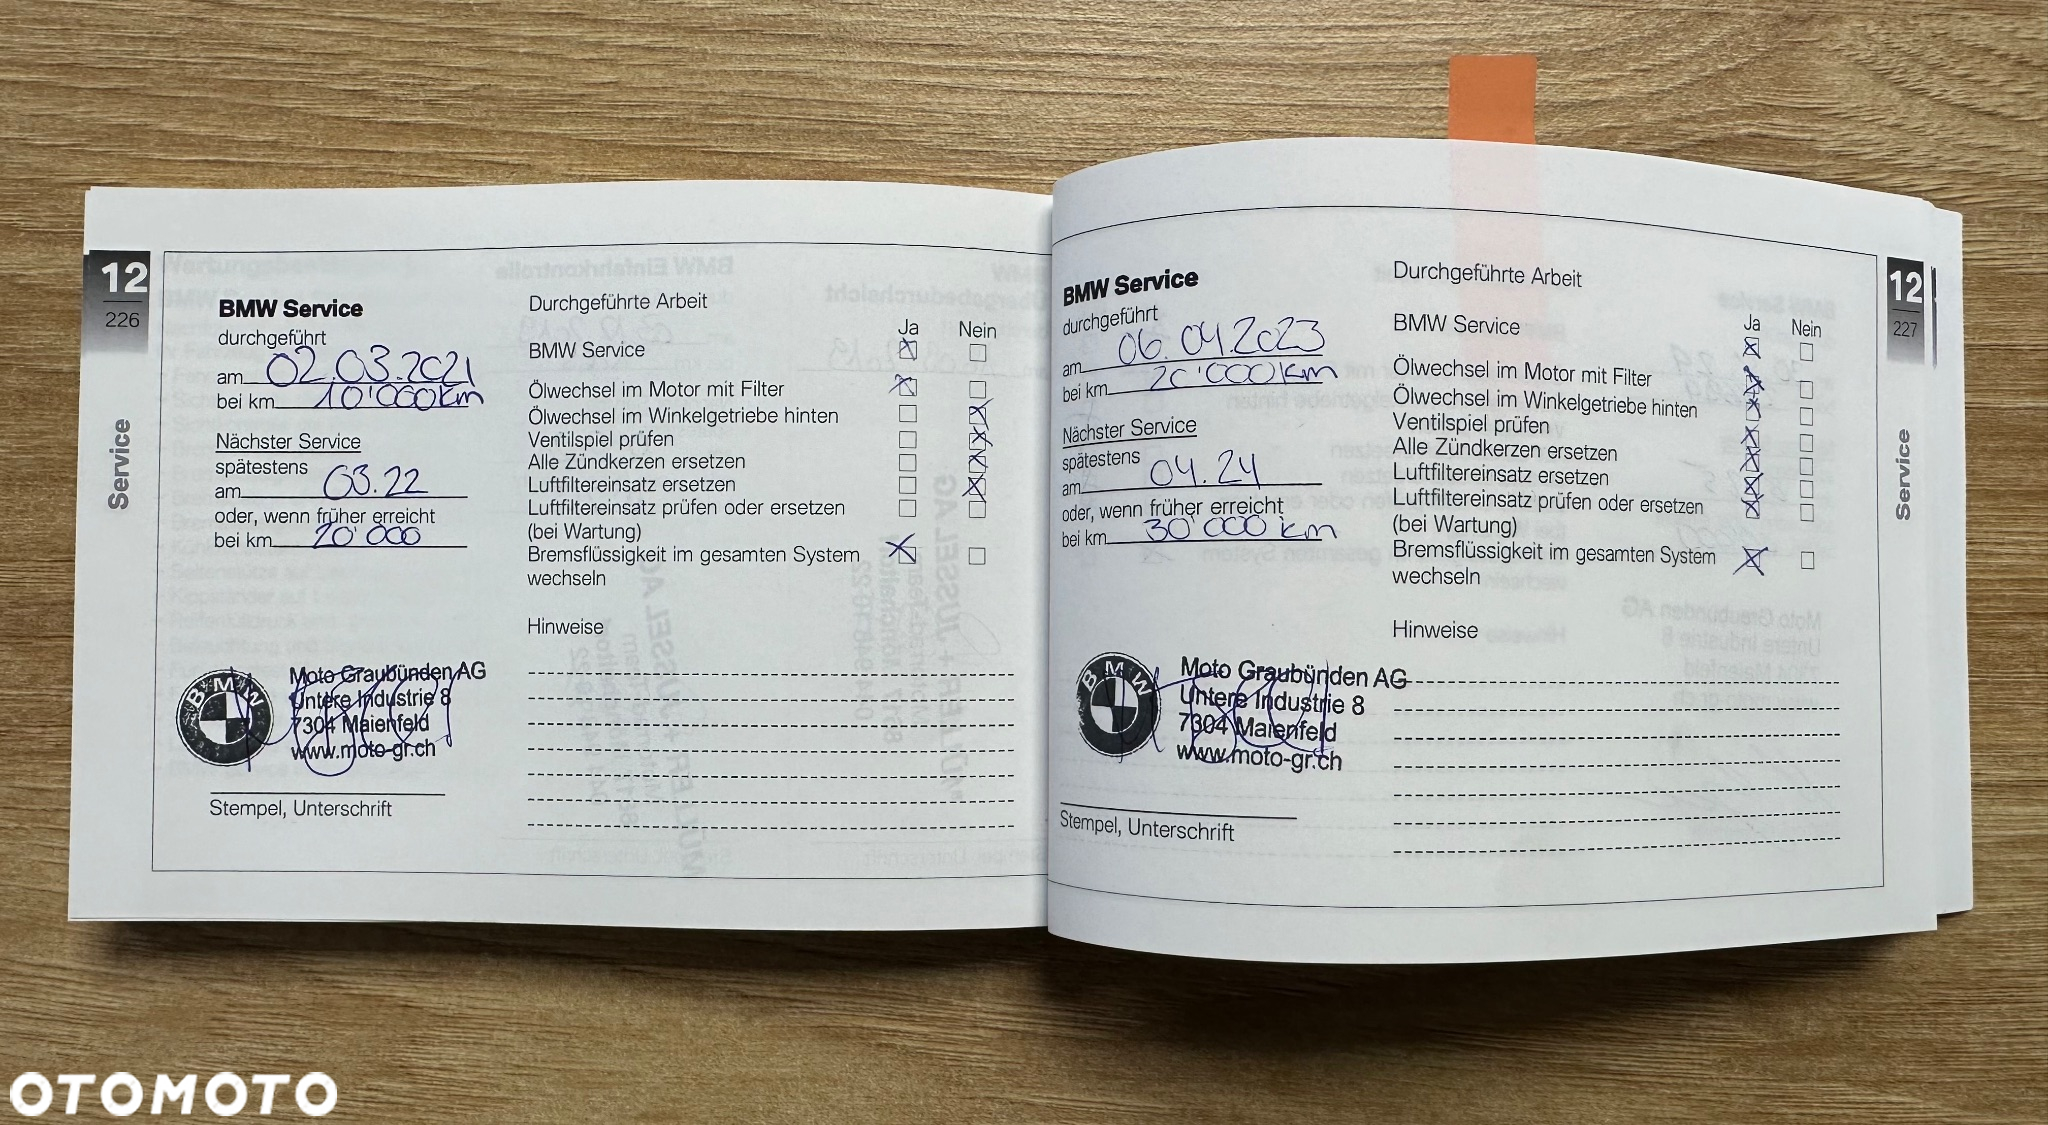 12
226
Service
BMW Service
durchgeführt
am 02.03.2021
bei km 10'000km
Nächster Service
spätestens
am 03.22
oder, wenn früher erreicht
bei km 20'000
BMW
Moto Graubünden AG
Untere Industrie 8
7304 Maienfeld
www.moto-gr.ch
Stempel, Unterschrift
Durchgeführte Arbeit
Ja Nein
BMW Service
Ölwechsel im Motor mit Filter
Ölwechsel im Winkelgetriebe hinten
Ventilspiel prüfen
Alle Zündkerzen ersetzen
Luftfiltereinsatz ersetzen
Luftfiltereinsatz prüfen oder ersetzen
(bei Wartung)
Bremsflüssigkeit im gesamten System
wechseln
Hinweise
BMW Service
durchgeführt
am 06.04.2023
bei km 20'000km
Nächster Service
spätestens
am 04.24
oder, wenn früher erreicht
bei km 30'000 km
BMW
Moto Graubünden AG
Untere Industrie 8
7304 Maienfeld
www.moto-gr.ch
Stempel, Unterschrift
Durchgeführte Arbeit
Ja Nein
BMW Service
Ölwechsel im Motor mit Filter
Ölwechsel im Winkelgetriebe hinten
Ventilspiel prüfen
Alle Zündkerzen ersetzen
Luftfiltereinsatz ersetzen
Luftfiltereinsatz prüfen oder ersetzen
(bei Wartung)
Bremsflüssigkeit im gesamten System
wechseln
Hinweise
12
227
Service
OTOMOTO